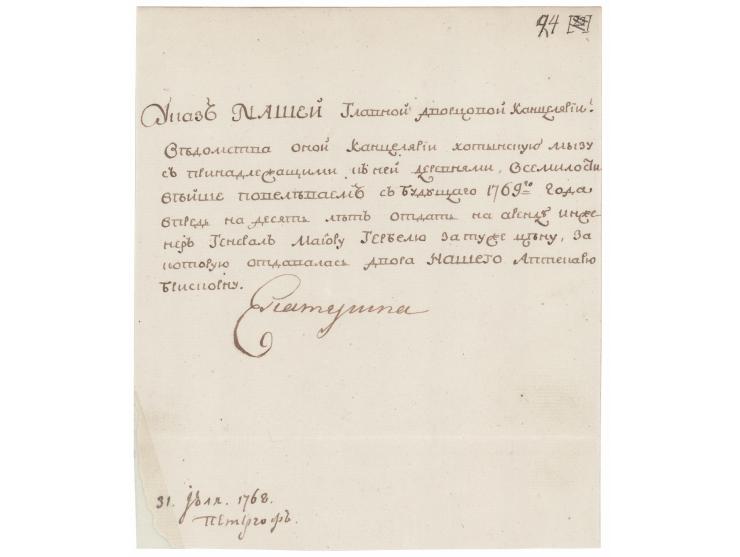 24
Указъ НАШЕЙ Главной дворцовой Канцеляріи.
Вѣдомства оной Канцеляріи хотынскую мызу
съ принадлежащими къ ней деревнями, Всемилости
вѣйше повелѣваемъ съ будущаго 1769го года
впредь на десять лѣтъ отдать на аренду инже
неръ Генералъ Маіору Гербелю за туже цѣну, за
которую отдавалась двора НАШЕГО Аптекарю
Брискорну.
Екатерина
31. Іюля. 1768.
Петергофъ.